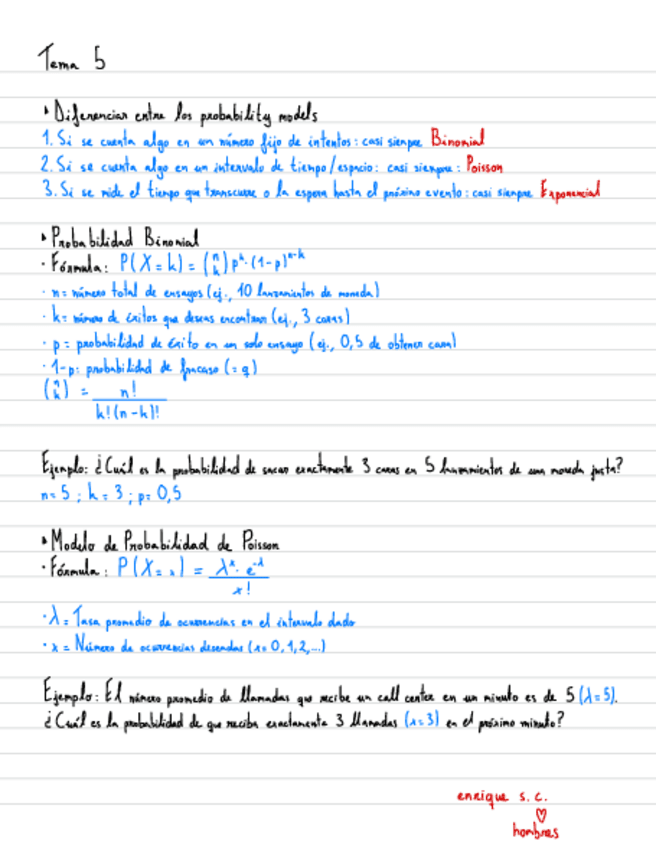 Tema 5
• Diferencias entre los probability models
1. Si se cuenta algo en un número fijo de intentos: casi siempre Binomial
2. Si se cuenta algo en un intervalo de tiempo/espacio: casi siempre: Poisson
3. Si se mide el tiempo que transcurre o la espera hasta el próximo evento: casi siempre Exponencial
• Probabilidad Binomial
· Fórmula: P(X=k) = (n k) p^k · (1-p)^n-k
· n= número total de ensayos (ej., 10 lanzamientos de moneda)
· k= número de éxitos que deseas encontrar (ej., 3 caras)
· p= probabilidad de éxito en un solo ensayo (ej., 0,5 de obtener cara)
· 1-p: probabilidad de fracaso (=q)
(n k) = n! / k!(n-k)!
Ejemplo: ¿Cuál es la probabilidad de sacar exactamente 3 caras en 5 lanzamientos de una moneda justa?
n=5; k=3; p=0,5
• Modelo de Probabilidad de Poisson
· Fórmula: P(X=x) = λ^x · e^-λ / x!
· λ= Tasa promedio de ocurrencias en el intervalo dado
· x= Número de ocurrencias deseadas (x=0,1,2,...)
Ejemplo: El número promedio de llamadas que recibe un call center en un minuto es de 5 (λ=5).
¿Cuál es la probabilidad de que reciba exactamente 3 llamadas (x=3) en el próximo minuto?
enrique s. c.
♡
hombres